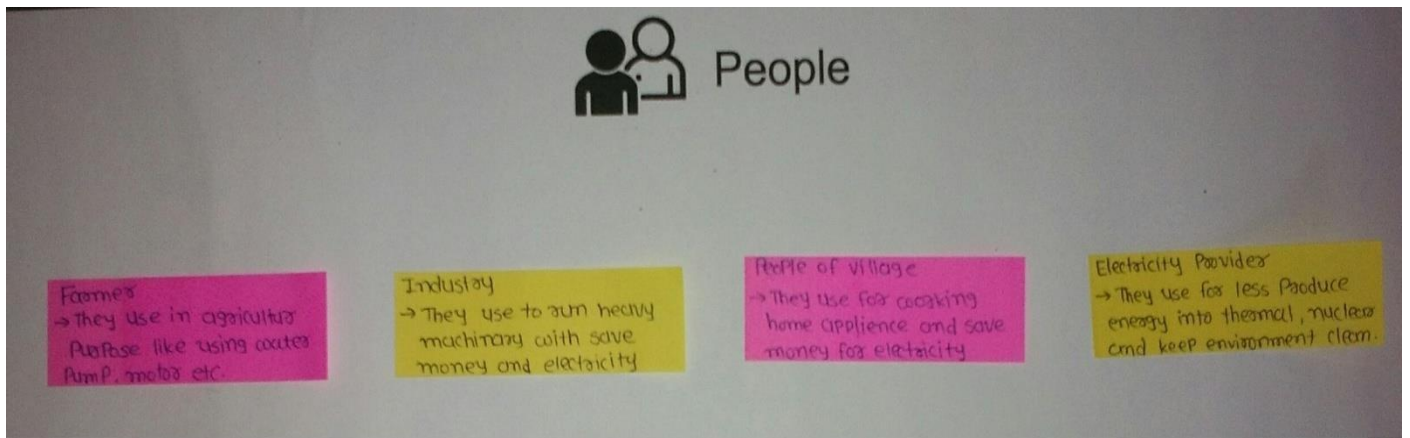 People
Farmer
→ They use in agricultur
Purpose like using water
Pump, motor etc.
Industry
→ They use to run heavy
machinary with save
money and electricity
People of village
→ They use for cooking
home applience and save
money for eletricity
Electricity Provider
→ They use for less Produce
energy into thermal, nuclear
and keep environment clean.